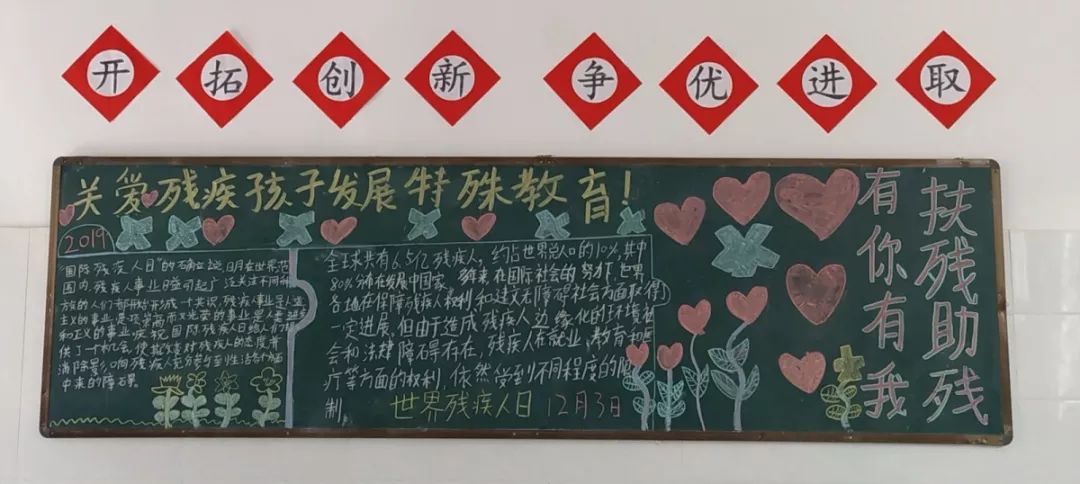 开拓创新 争优进取
关爱残疾孩子发展特殊教育！
2019
"国际残疾人日"的确立说明在世界范
国内，残疾人事业日益引起广泛关注不同种
族的人们都形成一共识，残疾事业是人道
主义的事业，是项崇高而又光荣的事业是人类进步
和正义的事业。庆祝国际残疾人日给人们提
供了一个机会，使
对残疾人的态度并
消除影响残疾人充分参与到生活各个方面
中来的障碍
全球共有6.5亿残疾人，约占世界总人口的10%，其中
80%分布在发展中国家，多年来在国际社会的努力下世界
各地在保障残疾人权利和建设无障碍社会方面取得了
一定进展，但由于造成残疾人边缘化的环境社
会和法律障碍存在，残疾人在就业，教育和医
疗等方面的权利，依然受到不同程度的限
制
世界残疾人日 12月3日
扶残助残
有你有我